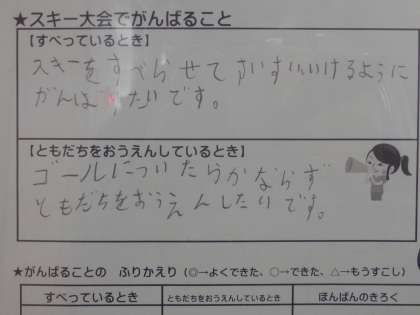 ★スキー大会でがんばること
【すべっているとき】
スキーをすべらせて
がんばりたいです。
【ともだちをおうえんしているとき】
ゴールについたらかならず
ともだちをおうえんしたいです。
★がんばることの ふりかえり(◎→よくできた、○→できた、△→もうすこし)
すべっているとき ともだちをおうえんしているとき ほんばんのきろく